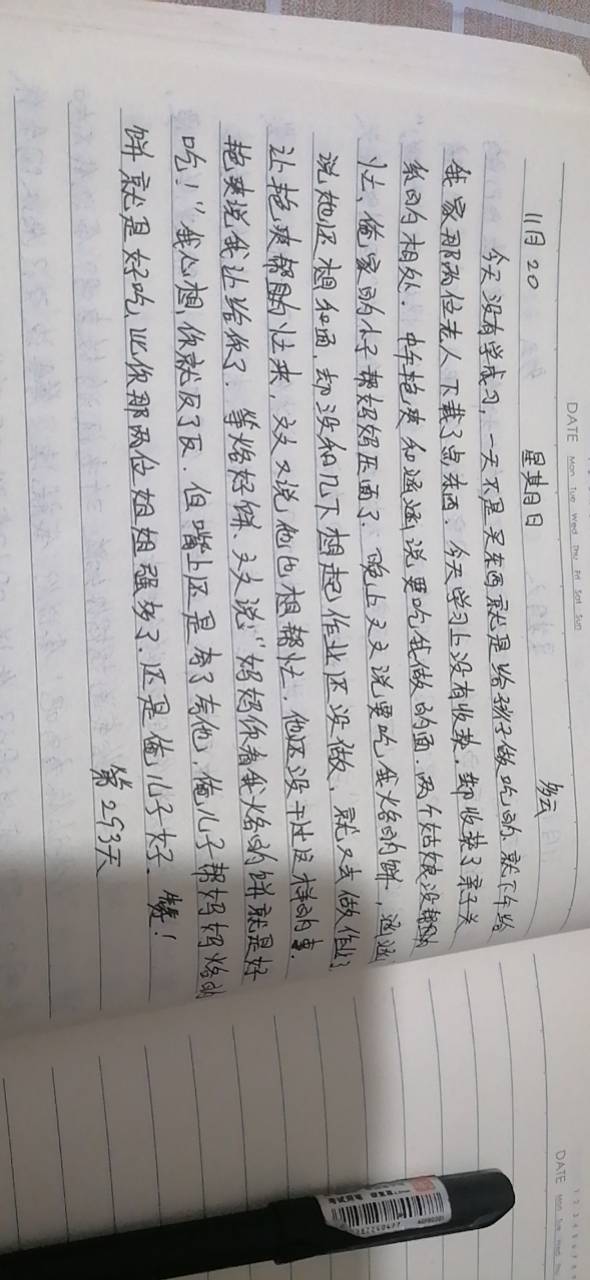 DATE Mon Tue Wed Thu Fri Sat Sun
11月20 星期日 多云
今天没有学成习，一天不是买东西就是给孩子做吃的．就下午给
我家那两位老人下载了点东西．今天学习上没有收获，却收获了亲子关
系的相处．中午艳爽和涵涵说要吃我做的面．两个姑娘没帮助
忙，俺家的小子帮妈妈压面了．晚上文文说要吃我烙的饼，涵涵
说她还想和面，却没和几下想起作业还没做，就又去做作业了
让艳爽帮助过来，文文又说他也想帮忙．他还没干过这样的事．
艳爽说我让给你了．等烙好饼、文文说：“妈妈你看我烙的饼就是好
吃！”我心想，你就反了反．但嘴上还是夸了夸他，俺儿子帮妈妈烙的
饼就是好吃，比你那两位姐姐强多了．还是俺儿子好．赞！
第293天
DATE Mon Tue Wed Thu